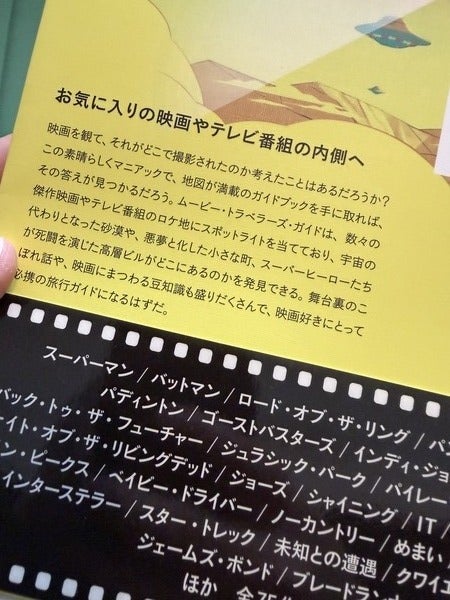 お気に入りの映画やテレビ番組の内側へ
映画を観て、それがどこで撮影されたのか考えたことはあるだろうか?
この素晴らしくマニアックで、地図が満載のガイドブックを手に取れば、
その答えが見つかるだろう。ムービー・トラベラーズ・ガイドは、数々の
傑作映画やテレビ番組のロケ地にスポットライトを当てており、宇宙の
代わりとなった砂漠や、悪夢と化した小さな町、スーパーヒーローたち
が死闘を演じた高層ビルがどこにあるのかを発見できる。舞台裏のこ
ぼれ話や、映画にまつわる豆知識も盛りだくさんで、映画好きにとって
必携の旅行ガイドになるはずだ。
スーパーマン / バットマン / ロード・オブ・ザ・リング /
パディントン / ゴーストバスターズ / インディ・ジョ
バック・トゥ・ザ・フューチャー / ジュラシック・パーク / パイレー
イト・オブ・ザ・リビングデッド / ジョーズ / シャイニング / IT /
ン・ピークス / ベイビー・ドライバー / ノーカントリー / めまい /
インターステラー / スター・トレック / 未知との遭遇 / クワイエ
ジェームズ・ボンド / ブレードラン
ほか 全75